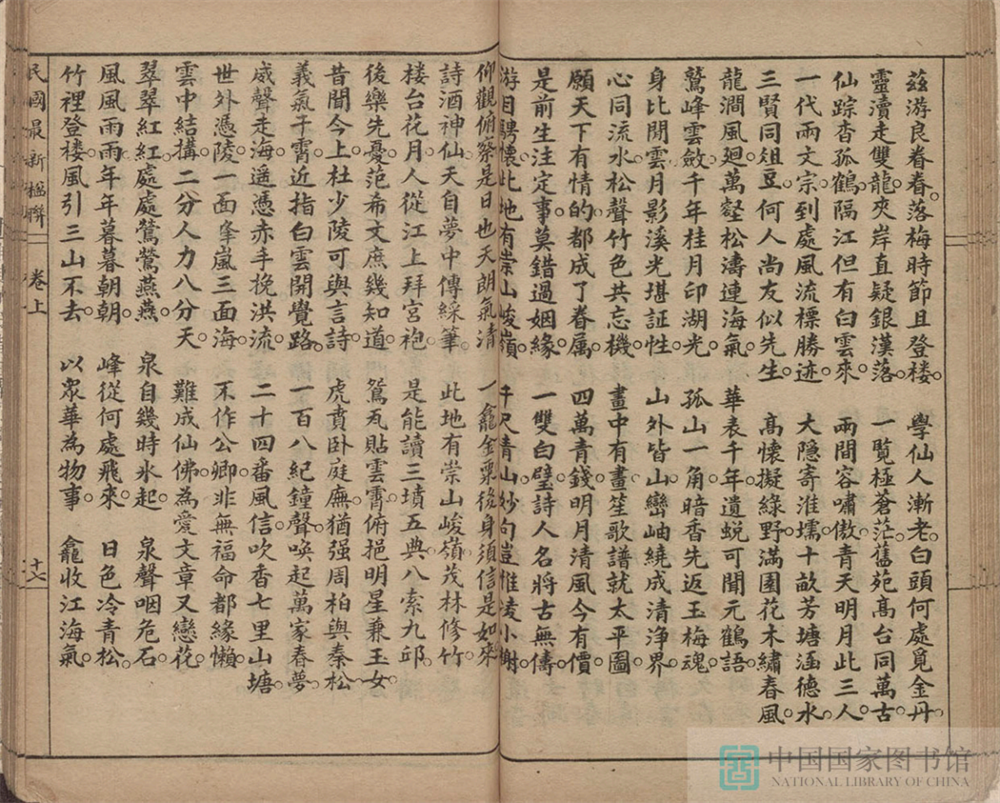 茲游良眷眷。落梅時節且登楼。學仙人漸老。白頭何處覓金丹。
靈瀆走雙龍。夾岸直疑銀漢落。一覧極蒼茫。舊苑高台同萬古。
仙踪杳孤鶴。隔江但有白雲來。兩間容嘯傲。青天明月此三人。
一代兩文宗。到處風流標勝迹。大隱寄淮壖。十畝芳塘涵德水。
三賢同俎豆。何人尚友似先生。高懷擬綠野。滿園花木繡春風。
龍澗風廻。萬壑松濤連海氣。華表千年。遺蜕可聞元鶴語。
鷲峰雲斂。千年桂月印湖光。孤山一角。暗香先返玉梅魂。
身比閒雲。月影溪光堪証性。山外皆山。巒岫繞成清淨界。
心同流水。松聲竹色共忘機。畫中有畫。笙歌譜就太平圖。
願天下有情的。都成了眷属。四萬青錢。明月清風今有價。
是前生注定事。莫錯過姻緣。一雙白璧。詩人名將古無儔。
游目騁懐。此地有崇山峻嶺。千尺青山。妙句豈惟凌小謝。
仰觀俯察。是日也天朗氣清。一龕金粟。後身須信是如來。
詩酒神仙。天自夢中傳綵筆。此地有崇山峻嶺。茂林修竹。
楼台花月。人從江上拜宮袍。是能讀三墳五典。八索九邱。
後樂先憂。范希文庶幾知道。鴛瓦貼雲霄。俯挹明星兼玉女。
昔聞今上。杜少陵可與言詩。虎賁卧庭廡。猶强周柏與秦松。
義氣干霄。近指白雲開覺路。一百八紀鐘聲。喚起萬家春夢。
威聲走海。遥憑赤手挽洪流。二十四番風信。吹香七里山塘。
世外憑陵。一面峯嵐三面海。不作公卿。非無福命都緣懶。
雲中結構。二分人力八分天。難成仙佛。為愛文章又戀花。
翠翠紅紅。處處鶯鶯燕燕。泉自幾時氷起。泉聲咽危石。
風風雨雨。年年暮暮朝朝。峰從何處飛來。日色冷青松。
竹裡登楼。風引三山不去。以衆華為物事。龕收江海氣。
民國最新楹聯 卷上 十六
中国国家图书馆
NATIONAL LIBRARY OF CHINA